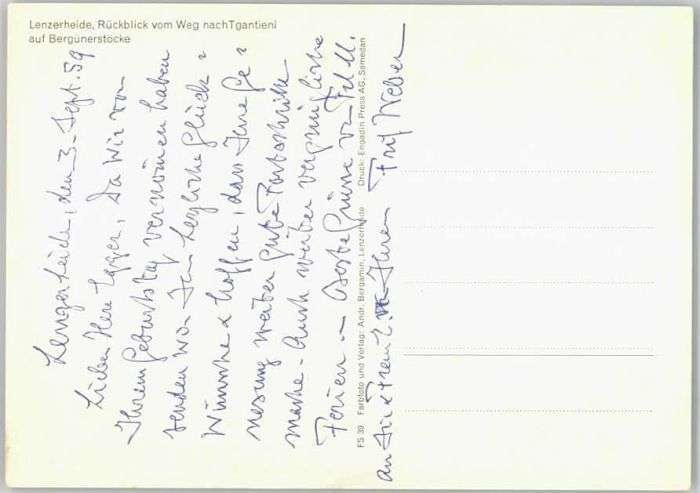 Lenzerheide, Rückblick vom Weg nachTgantieni
auf Bergünerstöcke
Lenzerheide, den 3. Sept. 59
Lieber Herr Egger, Da wir von
Ihrem Geburtstag vernommen haben
senden wir Ihnen herzliche Glück =
Wünsche & hoffen, dass Ihre Ge =
nesung weiter gute Fortschritte
mache. Auch weiter vergnügliche
Ferien Beste Grüsse
an Sie & Frau Ihren Fritz Weber
FS 39 Farbfoto und Verlag: Andr. Bergamin, Lenzerheide Druck: Engadin Press AG, Samedan